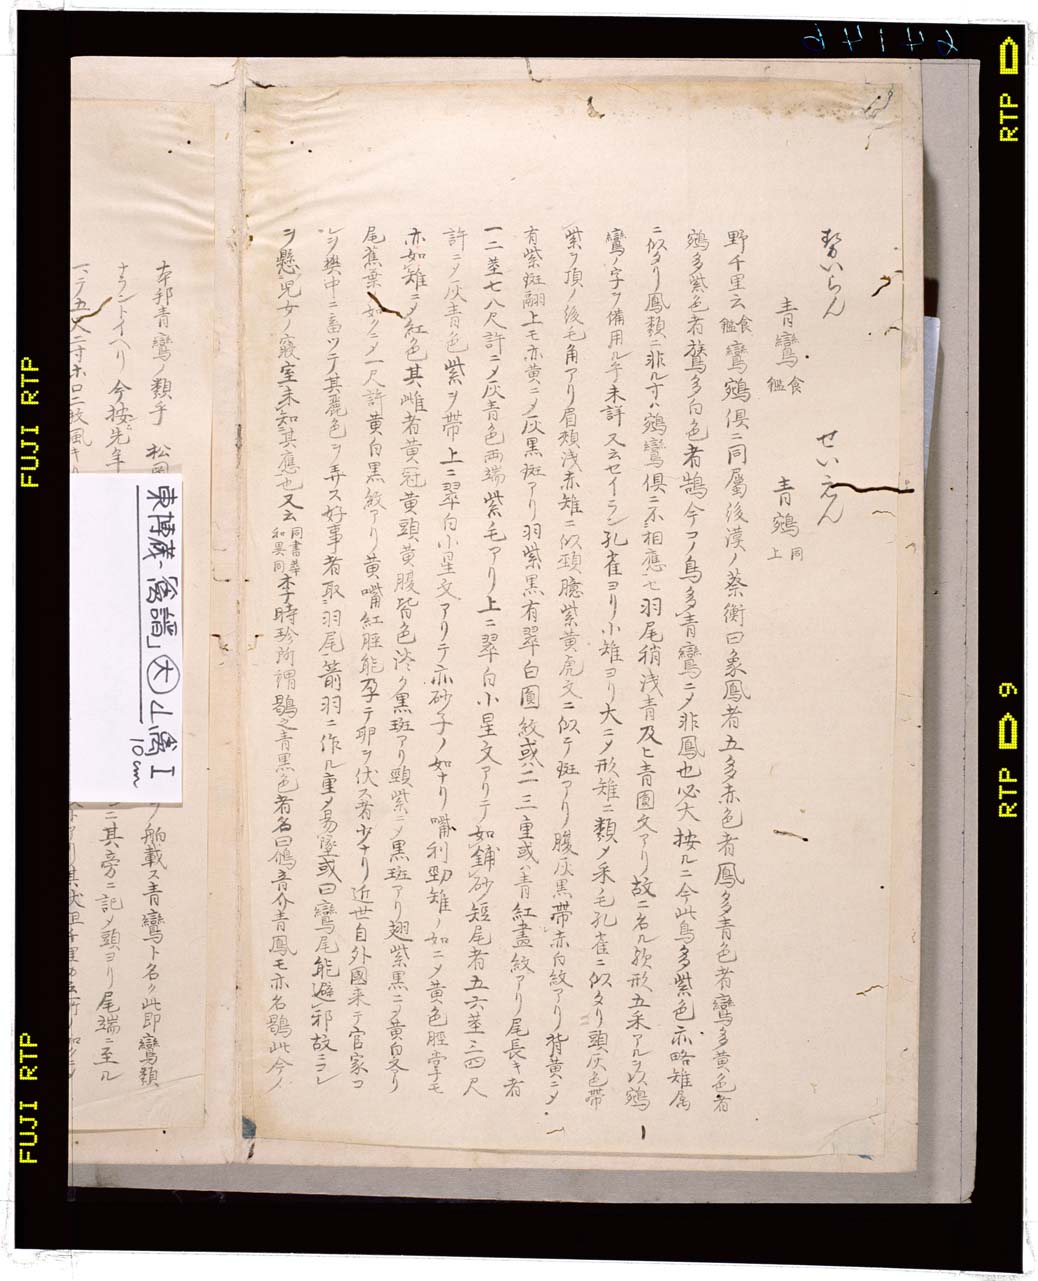 勢いらん　せいゑん
青鸞 食鑑　青鵷 同上
野千里云 食鑑 鸞鵷倶ニ同屬後漢ノ蔡衡曰象鳳者五多赤色者鳳多青色者鸞多黄色者
鵷多紫色者鷟多白色者鵠今コノ鳥多青鸞ニメ非鳳也必大按ルニ今此鳥多紫色亦略雉属
ニ似タリ鳳類ニ非ル寸ハ鵷鸞倶ニ不相應セ羽尾稍浅青及ヒ青圓文アリ故ニ名ル歟形五采アルヲ以鵷
鸞ノ字ヲ備用ル乎未詳又云セイラン孔雀ヨリ小雉ヨリ大ニメ形雉ニ類メ采毛孔雀ニ似タリ頭灰色帯
紫ヲ頂ノ後毛角アリ眉頬浅赤雉ニ似頸臆紫黄虎文ニ似テ斑アリ腹灰黒帯赤白紋アリ背黄ニメ
有紫斑翮上モ亦黄ニメ灰黒斑アリ羽紫黒有翠白圓紋或ハ二三重或ハ青紅畫紋アリ尾長キ者
一二莖七八尺許ニメ灰青色両端紫毛アリ上ニ翠白小星文アリテ如鋪砂短尾者五六莖三四尺
許ニメ灰青色紫ヲ帯上ニ翠白小星文アリテ亦砂子ノ如ナリ嘴利勁雉ノ如ニメ黄色脛掌モ
亦如雉ニメ紅色其雌者黄冠黄頭黄腹皆色淡ク黒斑アリ頸紫ニメ黒斑アリ翅紫黒ニメ黄白交リ
尾蕉葉ノ如クニメ一尺許黄白黒紋アリ黄嘴紅脛能孕テ卵ヲ伏ス者少ナリ近世自外國来テ官家コ
レヲ樊中ニ畜ツテ其麗色ヲ弄ス好事者取羽尾箭羽ニ作ル重メ易墜或曰鸞尾能避邪故ニコレ
ヲ懸児女ノ寢室未知其應也又云 同書華和異同 李時珍所謂鶡之青黒色者名曰鳻音介青鳳モ亦名鶡此今ノ
本邦青鸞ノ類乎　松岡
ノ舶載ス青鸞ト名ク此即鸞類
ナラントイヘリ今按先年
ニ其旁ニ記メ頭ヨリ尾端ニ至ル
東博蔵「禽譜」大 山禽 I
10cm
64146
FUJI RTP
FUJI RTP
RTP
RTP 9